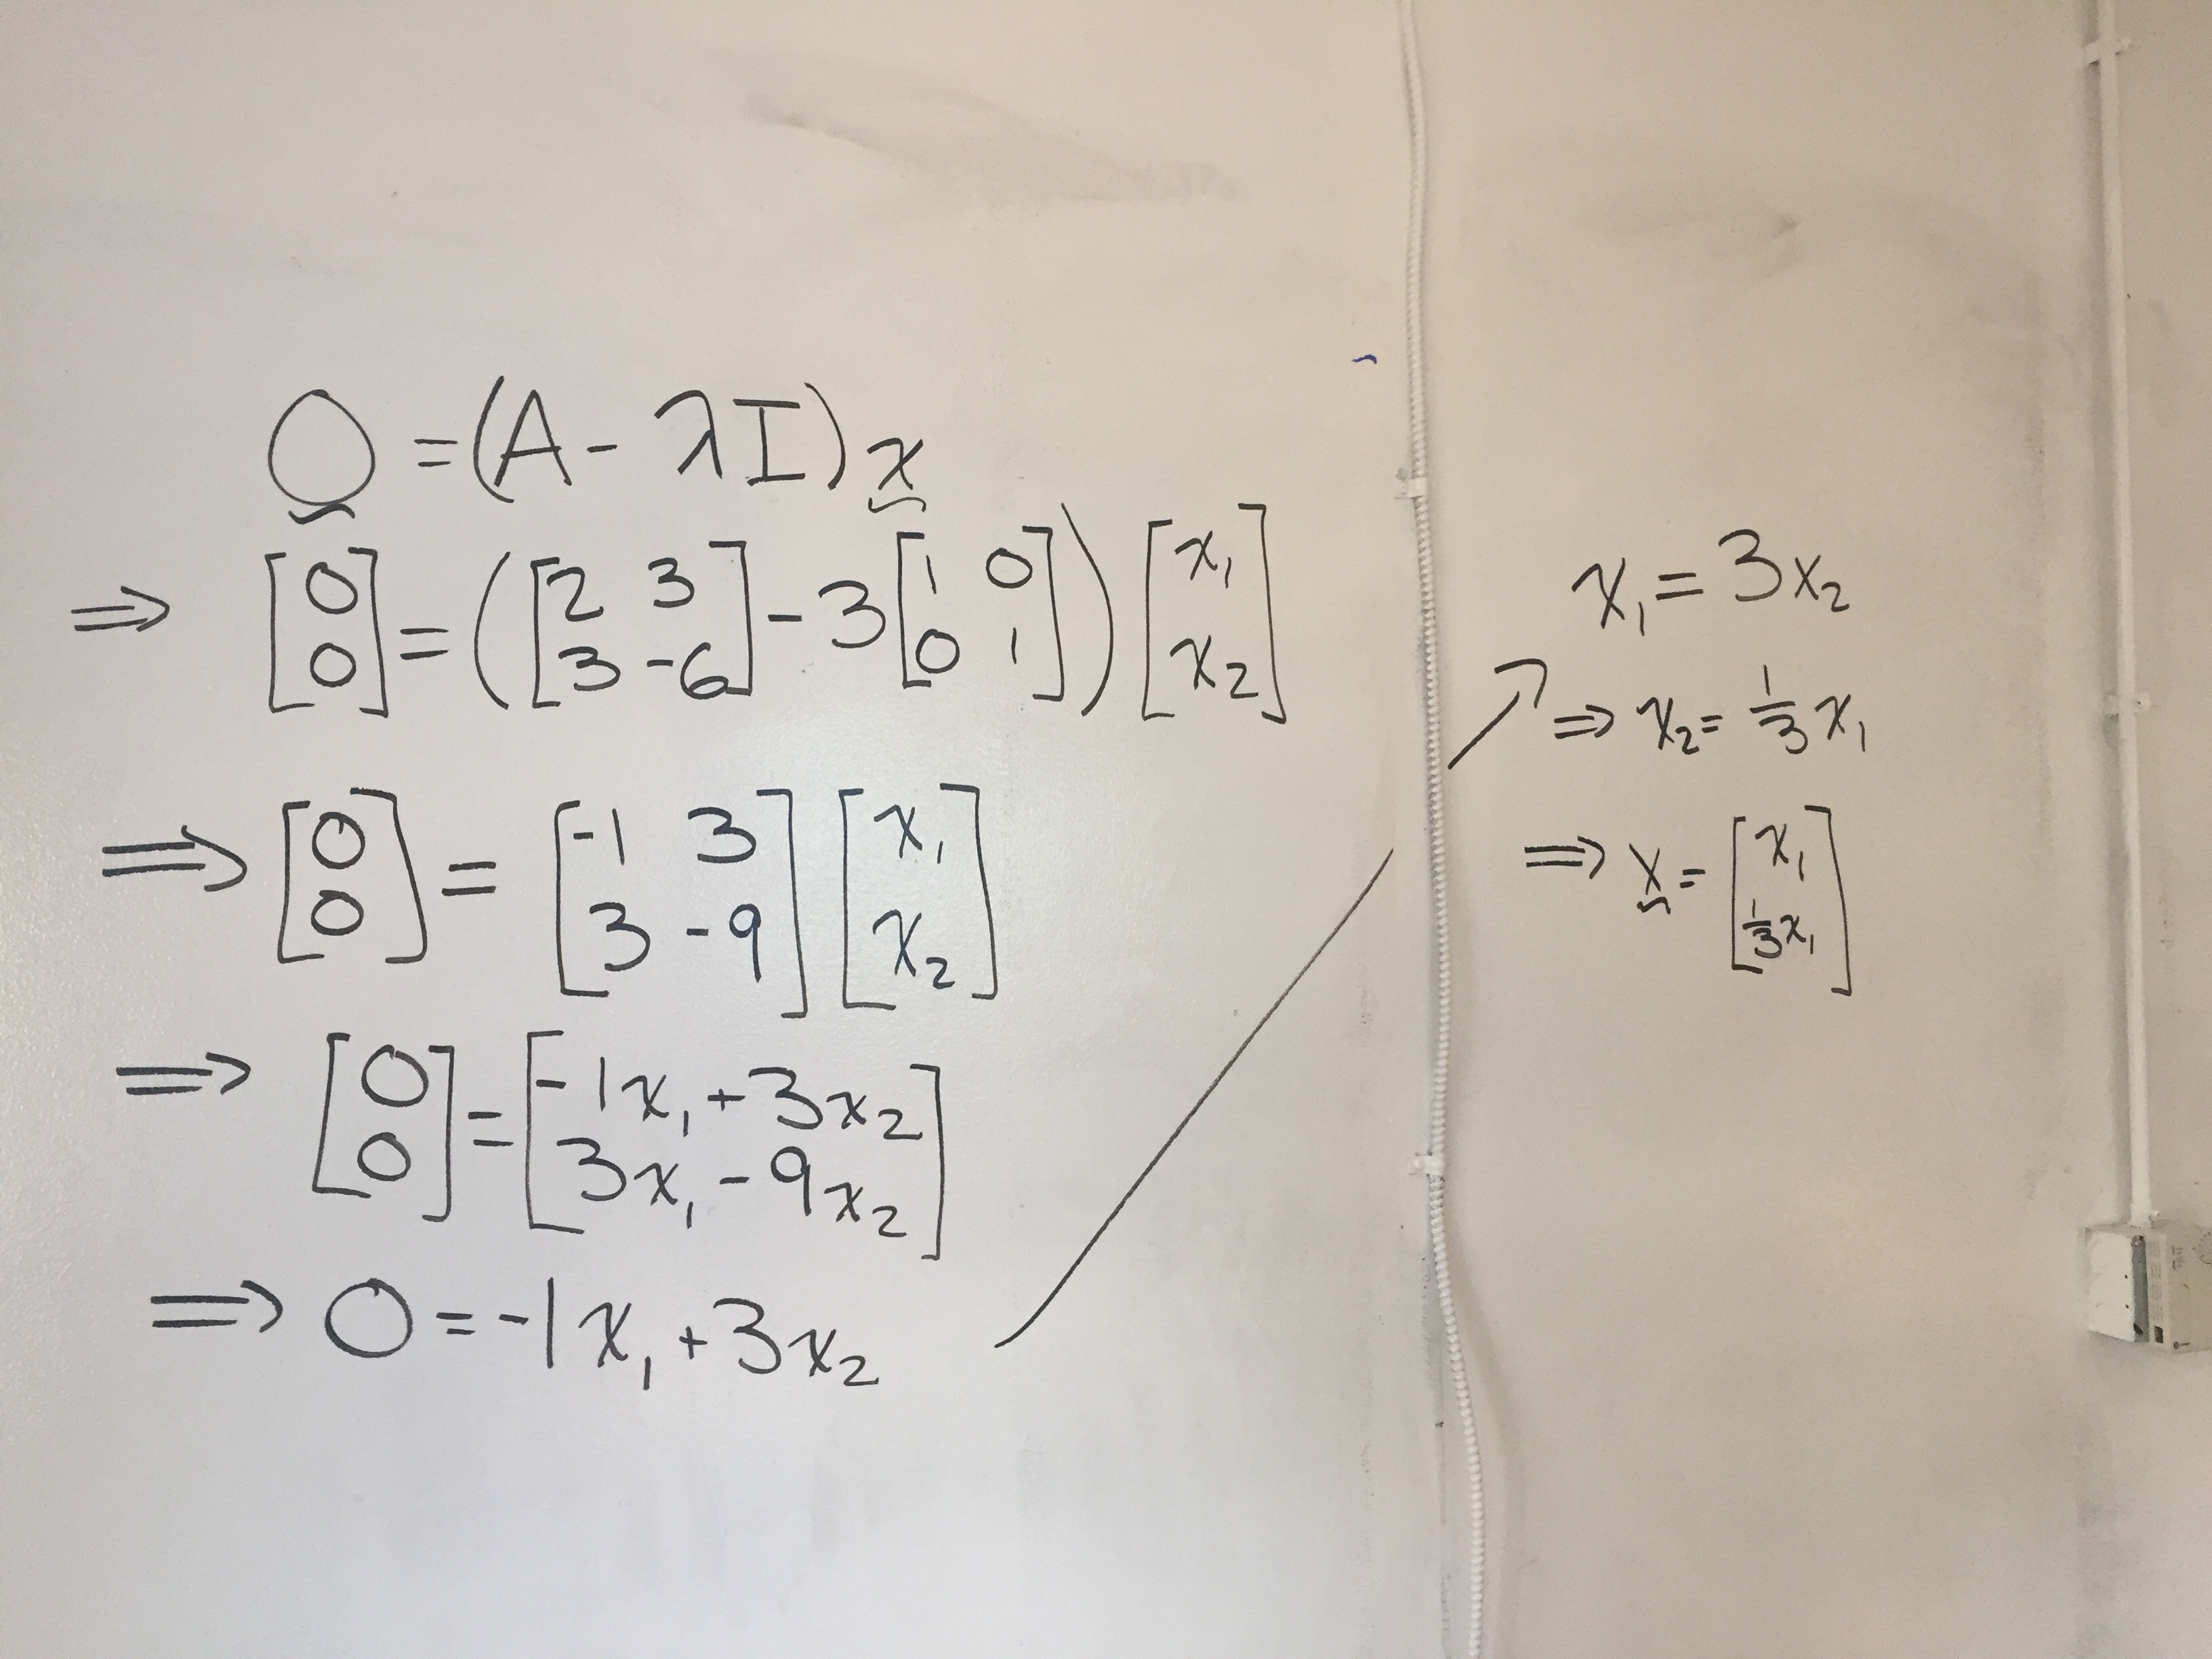 0 = (A - λI) x
⇒ [0 0] = ([2 3 3 -6] - 3 [1 0 0 1]) [x₁ x₂]
⇒ [0 0] = [-1 3 3 -9] [x₁ x₂]
⇒ [0 0] = [-1x₁ + 3x₂ 3x₁ - 9x₂]
⇒ 0 = -1x₁ + 3x₂
x₁ = 3x₂
⇒ x₂ = 1/3 x₁
⇒ x = [x₁ 1/3 x₁]